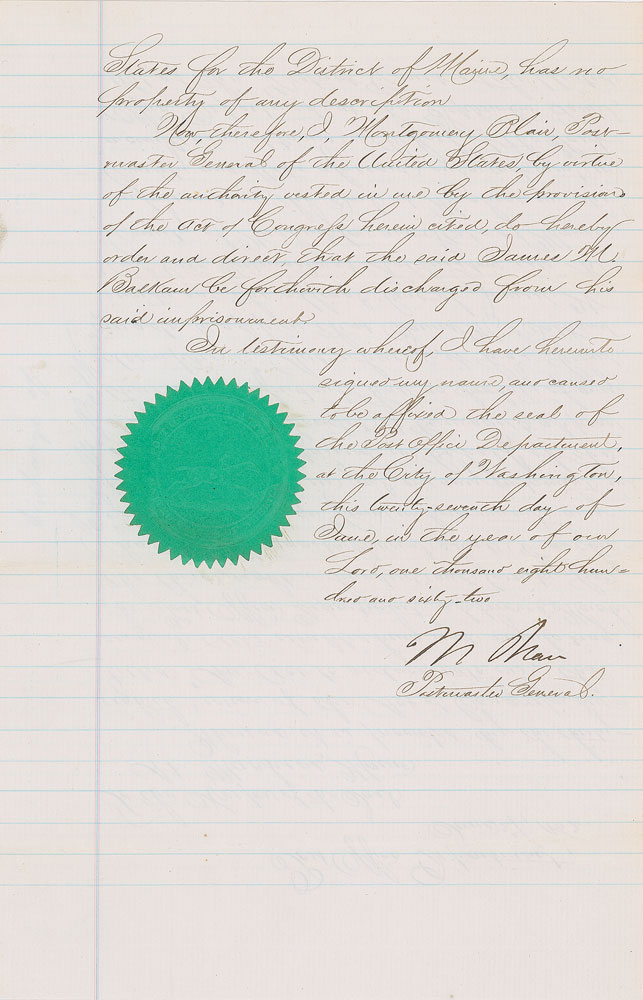 States for the District of Maine, has no
property of any description
Now, therefore, I, Montgomery Blair, Post-
master General of the United States, by virtue
of the authority vested in me by the provisions
of the Act of Congress herein cited, do hereby
order and direct, that the said James M.
Balkam be forthwith discharged from his
said imprisonment.
In testimony whereof, I have hereunto
signed my name, and caused
to be affixed the seal of
the Post Office Department,
at the City of Washington,
this twenty-seventh day of
June, in the year of our
Lord, one thousand eight hun=
dred and sixty-two
M Blair
Postmaster General.